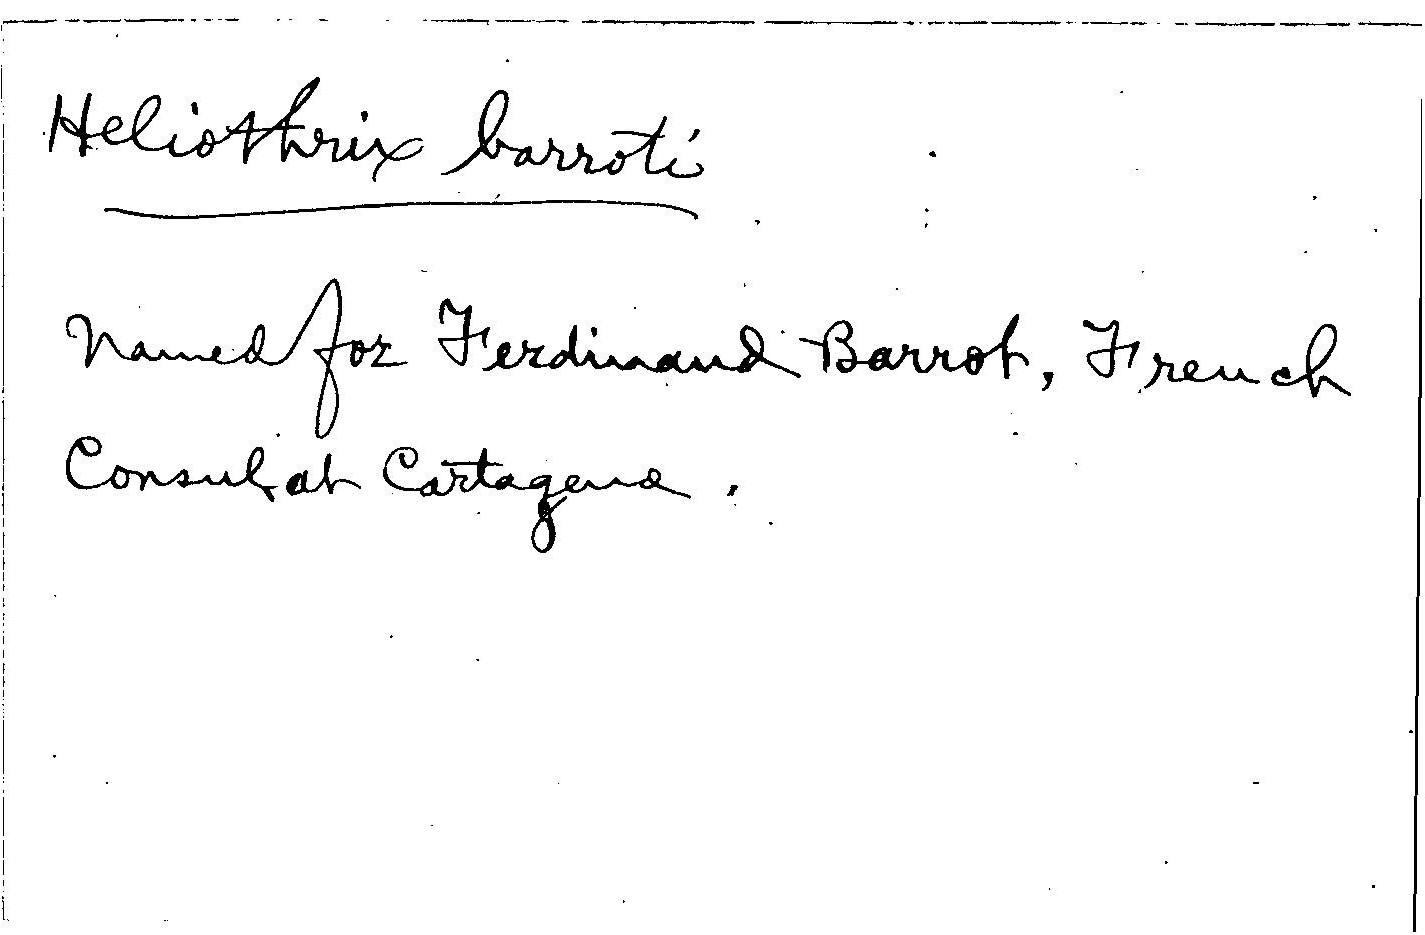 Heliothrix barroti
Named for Ferdinand Barrot, French
Consul at Cartagena.